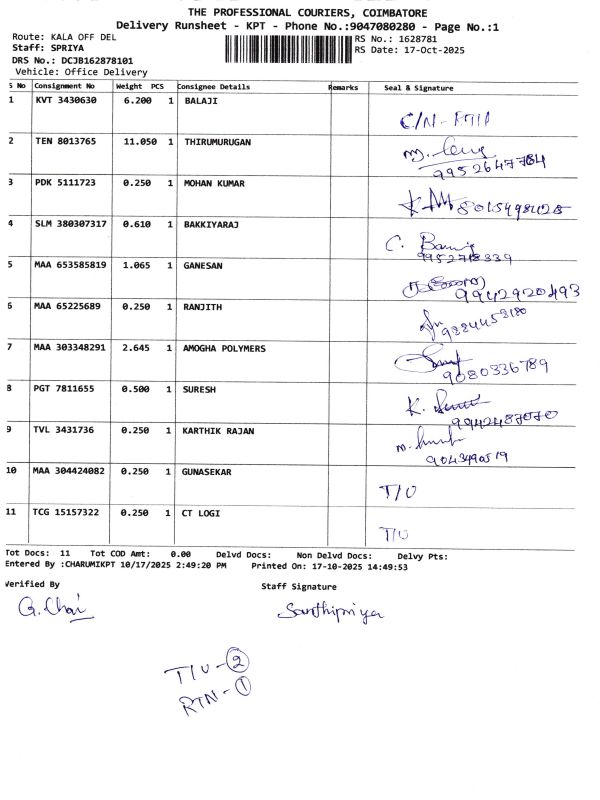 THE PROFESSIONAL COURIERS, COIMBATORE
Delivery Runsheet - KPT - Phone No.:9047080280 - Page No.:1
Route: KALA OFF DEL
RS No.: 1628781
Staff: SPRIYA
RS Date: 17-Oct-2025
DRS No.: DCJB162878101
Vehicle: Office Delivery
S No Consignment No Weight PCS Consignee Details Remarks Seal & Signature
1 KVT 3430630 6.200 1 BALAJI
C/N -
2 TEN 8013765 11.050 1 THIRUMURUGAN
9952647764
3 PDK 5111723 0.250 1 MOHAN KUMAR
4 SLM 380307317 0.610 1 BAKKIYARAJ
C.
5 MAA 653585819 1.065 1 GANESAN
9942920493
6 MAA 65225689 0.250 1 RANJITH
7 MAA 303348291 2.645 1 AMOGHA POLYMERS
9080336789
8 PGT 7811655 0.500 1 SURESH
K.
9 TVL 3431736 0.250 1 KARTHIK RAJAN
10 MAA 304424082 0.250 1 GUNASEKAR
T/U
11 TCG 15157322 0.250 1 CT LOGI
T/U
Tot Docs: 11 Tot COD Amt: 0.00 Delvd Docs: Non Delvd Docs: Delvy Pts:
Entered By :CHARUMIKPT 10/17/2025 2:49:20 PM Printed On: 17-10-2025 14:49:53
Verified By Staff Signature
G. Chai Santhipriya
T/U - 2
RTN - 1